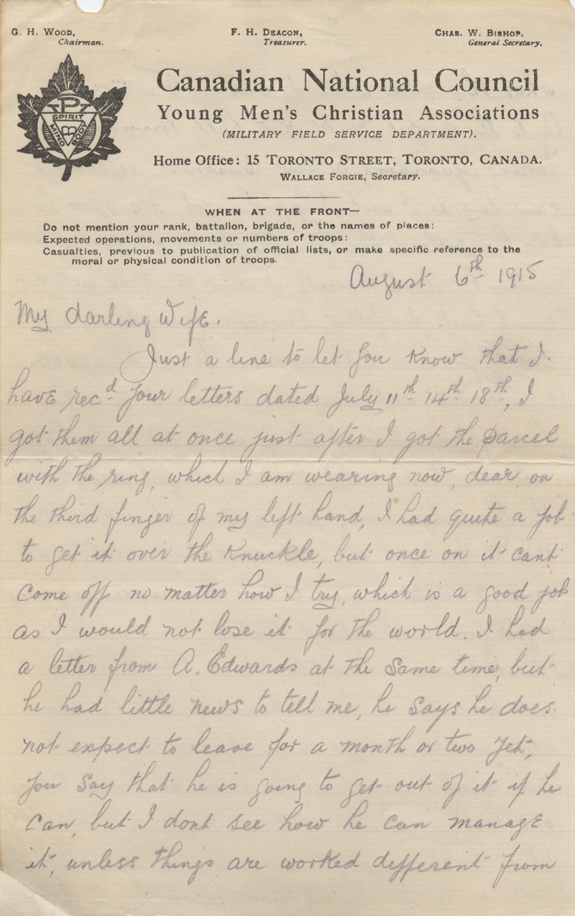 G. H. Wood,
Chairman.
F. H. Deacon,
Treasurer.
Chas. W. Bishop,
General Secretary.
P
SPIRIT
MIND
BODY
Canadian National Council
Young Men's Christian Associations
(MILITARY FIELD SERVICE DEPARTMENT).
Home Office: 15 Toronto Street, Toronto, Canada.
Wallace Forgie, Secretary.
WHEN AT THE FRONT—
Do not mention your rank, battalion, brigade, or the names of places:
Expected operations, movements or numbers of troops:
Casualties, previous to publication of official lists, or make specific reference to the
moral or physical condition of troops.
August 6th 1915
My darling Wife.
Just a line to let you know that I
have recd four letters dated July 11th 14th 18th, I
got them all at once just after I got the parcel
with the ring, which I am wearing now, dear, on
the third finger of my left hand, I had quite a job
to get it over the knuckle, but once on it cant
come off no matter how I try, which is a good job
as I would not lose it for the world. I had
a letter from A. Edwards at the same time, but
he had little news to tell me, he says he does
not expect to leave for a month or two yet,
you say that he is going to get out of it if he
can, but I dont see how he can manage
it, unless things are worked different from